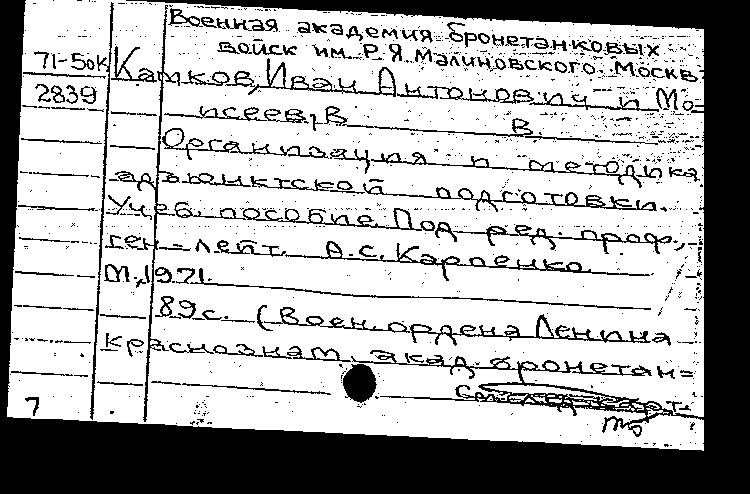 Военная академия бронетанковых
войск им. Р.Я. Малиновского. Москва
71-50к
2839
Катков, Иван Антонович и Мо-
исеев, В. В.
Организация и методика
адъюнктской подготовки.
Учеб. пособие. Под ред. проф.,
ген-лейт. А.С. Карпенко
М., 1971.
89с. (Воен. ордена Ленина
Краснознам. акад. бронетан-
См. след. карт.
7